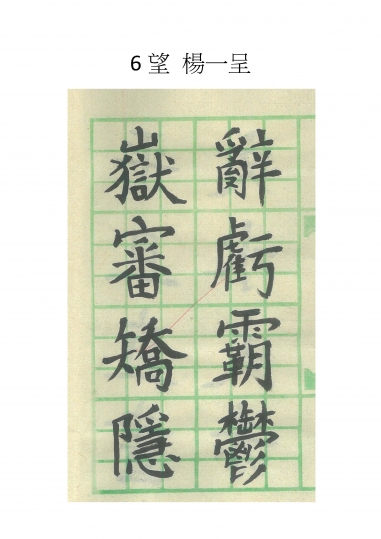 6望 楊一呈
辭虧霸鬱
嶽審矯隱